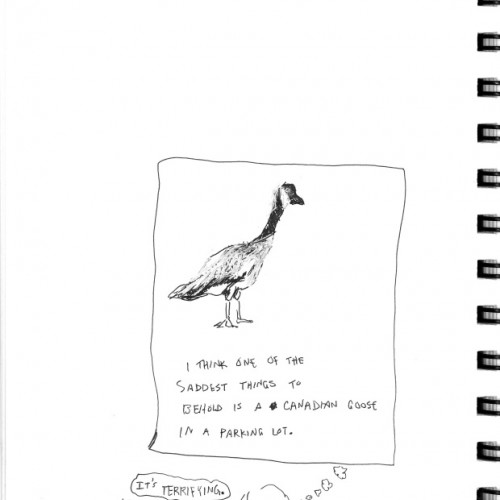 I THINK ONE OF THE
SADDEST THINGS TO
BEHOLD IS A CANADIAN GOOSE
IN A PARKING LOT.
IT'S TERRIFYING.